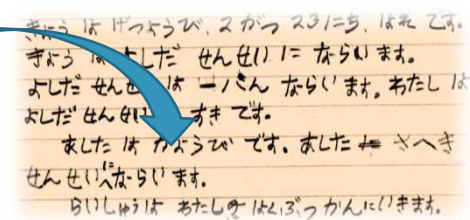 きょう は げつようび、2がつ 23にち、はれ です。
きょう は よしだ せんせい に ならい ます。
よしだ せんせ は 一ばん ならい ます。わたし は
よしだ せんせい すき です。
あした は かようび です。あした さへき
せんせいに ならい ます。
らいしゅうは わたしの はくぶつ かんに いきます。